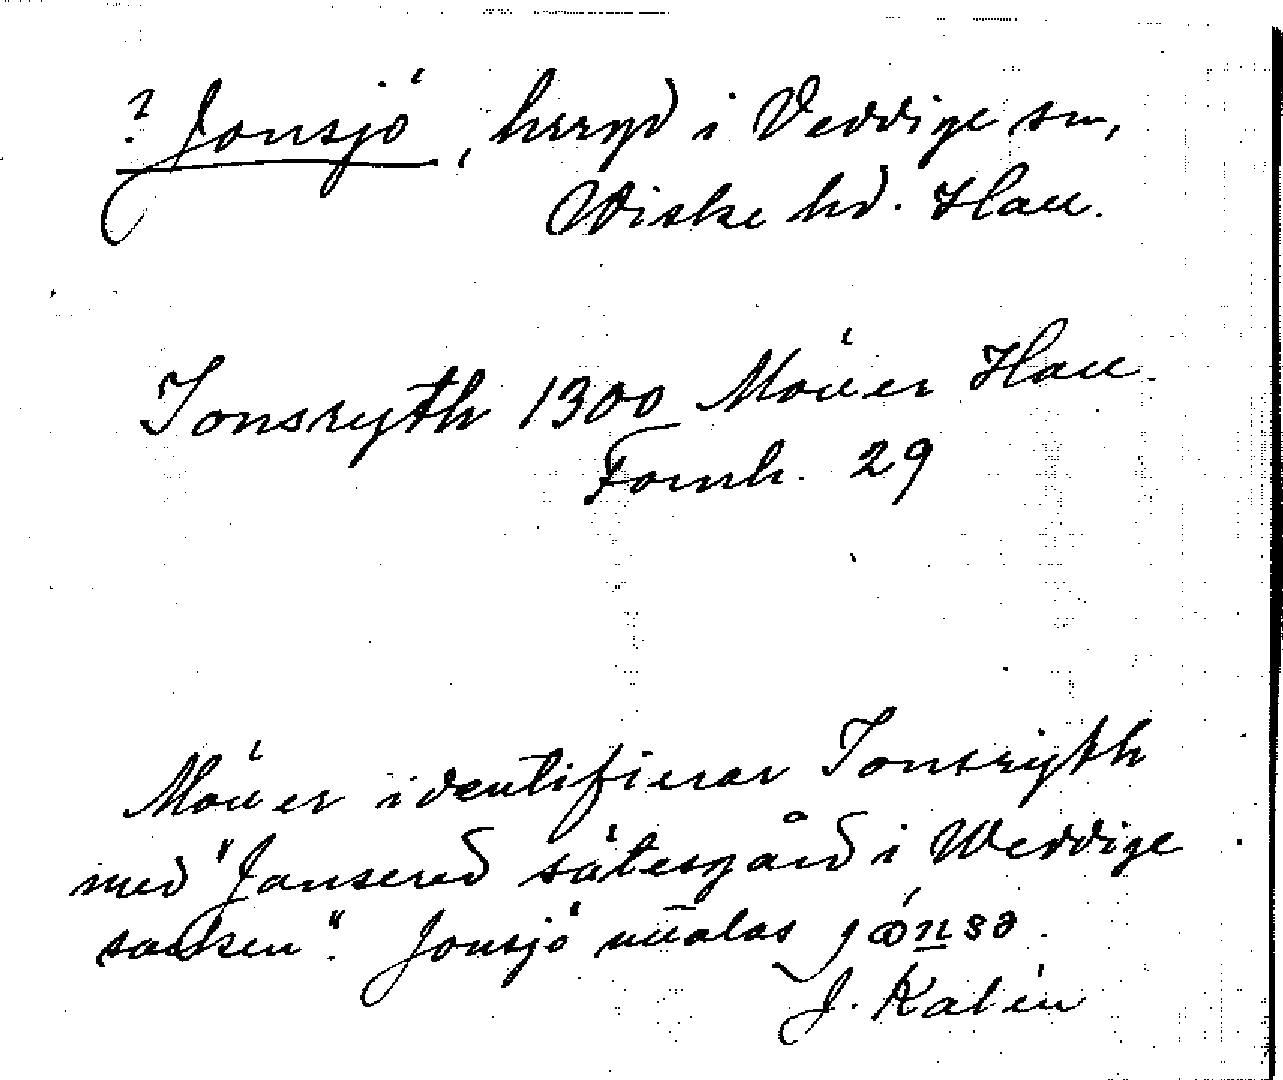 ? Jonsjö, hrrgd i Veddige sn,
Viske hd. Hall.
Jonsryth 1300 Möller Hall.
Fornh. 29
Möller identifierar Jonsryth
med "Jansered sätesgård i Weddige
socken". Jonsjö uttalas
J. Kalén